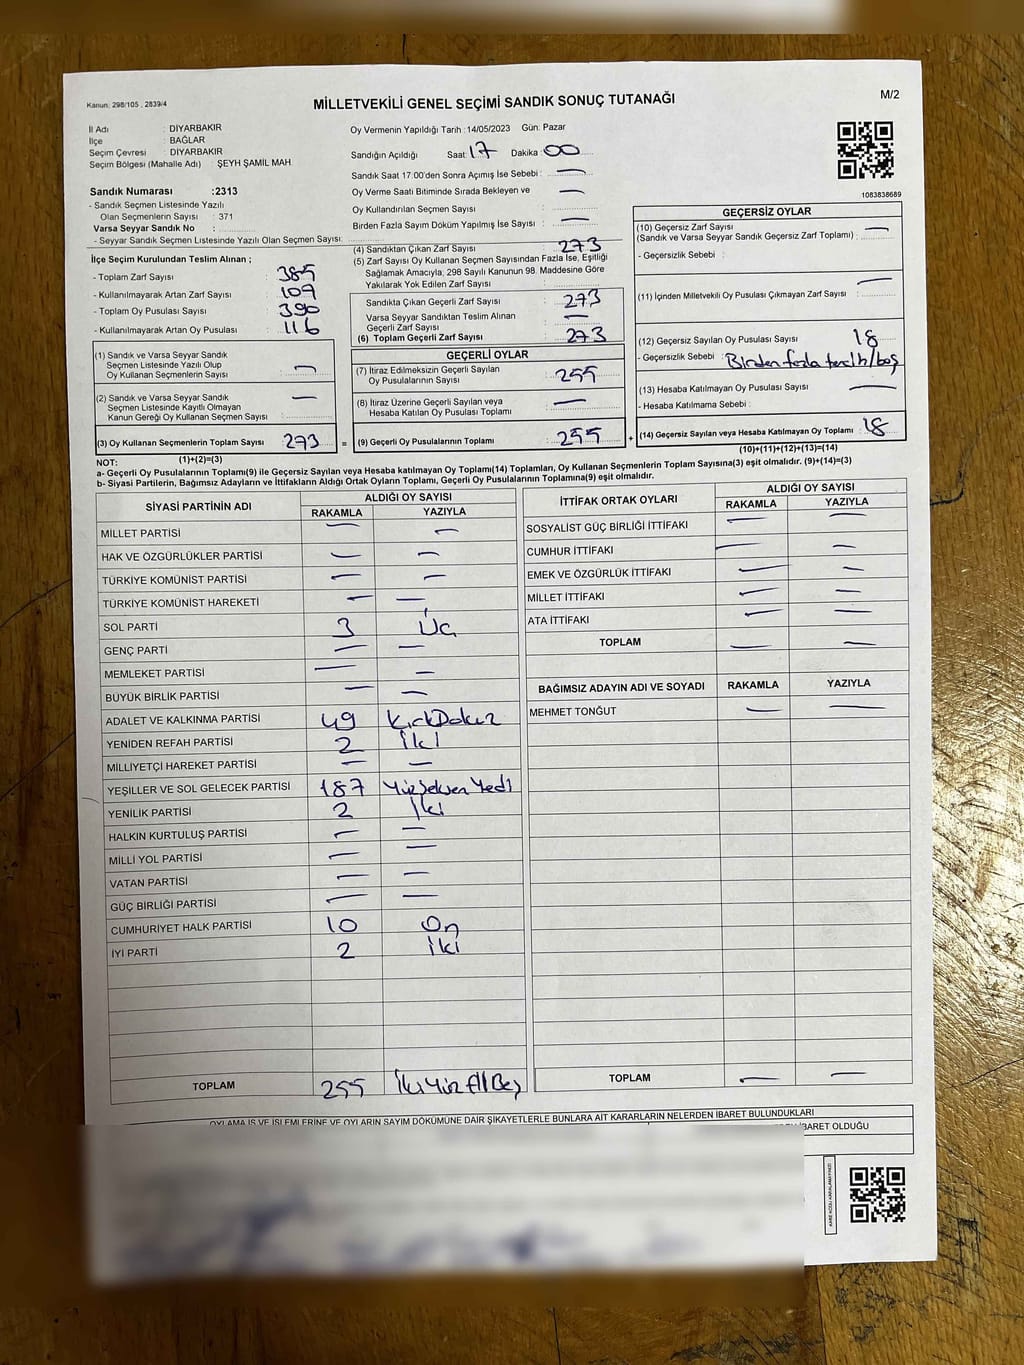 Kanun: 298/105 , 2839/4
MİLLETVEKİLİ GENEL SEÇİMİ SANDIK SONUÇ TUTANAĞI
M/2
İl Adı : DİYARBAKIR
İlçe : BAĞLAR
Seçim Çevresi : DİYARBAKIR
Seçim Bölgesi (Mahalle Adı) : ŞEYH ŞAMİL MAH.
Sandık Numarası :2313
- Sandık Seçmen Listesinde Yazılı
Olan Seçmenlerin Sayısı : 371
Varsa Seyyar Sandık No :
- Seyyar Sandık Seçmen Listesinde Yazılı Olan Seçmen Sayısı:
İlçe Seçim Kurulundan Teslim Alınan ;
- Toplam Zarf Sayısı : 385
- Kullanılmayarak Artan Zarf Sayısı : 109
- Toplam Oy Pusulası Sayısı : 390
- Kullanılmayarak Artan Oy Pusulası : 116
(1) Sandık ve Varsa Seyyar Sandık
Seçmen Listesinde Yazılı Olup
Oy Kullanan Seçmenlerin Sayısı : —
(2) Sandık ve Varsa Seyyar Sandık
Seçmen Listesinde Kayıtlı Olmayan
Kanun Gereği Oy Kullanan Seçmen Sayısı : —
(3) Oy Kullanan Seçmenlerin Toplam Sayısı : 273
(1)+(2)=(3)
Oy Vermenin Yapıldığı Tarih :14/05/2023 Gün: Pazar
Sandığın Açıldığı Saat: 17 Dakika: 00
Sandık Saat 17:00'den Sonra Açımış İse Sebebi : —
Oy Verme Saati Bitiminde Sırada Bekleyen ve —
Oy Kullandırılan Seçmen Sayısı :
Birden Fazla Sayım Döküm Yapılmış İse Sayısı : —
(4) Sandıktan Çıkan Zarf Sayısı : 273
(5) Zarf Sayısı Oy Kullanan Seçmen Sayısından Fazla İse, Eşitliği
Sağlamak Amacıyla, 298 Sayılı Kanunun 98. Maddesine Göre
Yakılarak Yok Edilen Zarf Sayısı :
Sandıkta Çıkan Geçerli Zarf Sayısı : 273
Varsa Seyyar Sandıktan Teslim Alınan
Geçerli Zarf Sayısı : —
(6) Toplam Geçerli Zarf Sayısı : 273
GEÇERLİ OYLAR
(7) İtiraz Edilmeksizin Geçerli Sayılan
Oy Pusulalarının Sayısı : 255
(8) İtiraz Üzerine Geçerli Sayılan veya
Hesaba Katılan Oy Pusulası Toplamı : —
= (9) Geçerli Oy Pusulalarının Toplamı : 255
1083838689
GEÇERSİZ OYLAR
(10) Geçersiz Zarf Sayısı —
(Sandık ve Varsa Seyyar Sandık Geçersiz Zarf Toplamı) :
- Geçersizlik Sebebi :
(11) İçinden Milletvekili Oy Pusulası Çıkmayan Zarf Sayısı : —
(12) Geçersiz Sayılan Oy Pusulası Sayısı : 18
- Geçersizlik Sebebi : Birden fazla tercih/boş
(13) Hesaba Katılmayan Oy Pusulası Sayısı : —
- Hesaba Katılmama Sebebi :
+ (14) Geçersiz Sayılan veya Hesaba Katılmayan Oy Toplamı : 18
(10)+(11)+(12)+(13)=(14)
NOT:
a- Geçerli Oy Pusulalarının Toplamı(9) ile Geçersiz Sayılan veya Hesaba katılmayan Oy Toplamı(14) Toplamları, Oy Kullanan Seçmenlerin Toplam Sayısına(3) eşit olmalıdır. (9)+(14)=(3)
b- Siyasi Partilerin, Bağımsız Adayların ve İttifakların Aldığı Ortak Oyların Toplamı, Geçerli Oy Pusulalarının Toplamına(9) eşit olmalıdır.
SİYASİ PARTİNİN ADI ALDIĞI OY SAYISI
RAKAMLA YAZIYLA
MİLLET PARTİSİ — —
HAK VE ÖZGÜRLÜKLER PARTİSİ — —
TÜRKİYE KOMÜNİST PARTİSİ — —
TÜRKİYE KOMÜNİST HAREKETİ — —
SOL PARTİ 3 Üç
GENÇ PARTİ — —
MEMLEKET PARTİSİ — —
BÜYÜK BİRLİK PARTİSİ — —
ADALET VE KALKINMA PARTİSİ 49 KırkDokuz
YENİDEN REFAH PARTİSİ 2 İki
MİLLİYETÇİ HAREKET PARTİSİ — —
YEŞİLLER VE SOL GELECEK PARTİSİ 187 YüzSeksen Yedi
YENİLİK PARTİSİ 2 İki
HALKIN KURTULUŞ PARTİSİ — —
MİLLİ YOL PARTİSİ — —
VATAN PARTİSİ — —
GÜÇ BİRLİĞİ PARTİSİ — —
CUMHURİYET HALK PARTİSİ 10 On
İYİ PARTİ 2 İki
TOPLAM 255 İkiYüzElliBeş
İTTİFAK ORTAK OYLARI ALDIĞI OY SAYISI
RAKAMLA YAZIYLA
SOSYALİST GÜÇ BİRLİĞİ İTTİFAKI — —
CUMHUR İTTİFAKI — —
EMEK VE ÖZGÜRLÜK İTTİFAKI — —
MİLLET İTTİFAKI — —
ATA İTTİFAKI — —
TOPLAM — —
BAĞIMSIZ ADAYIN ADI VE SOYADI RAKAMLA YAZIYLA
MEHMET TONĞUT — —
TOPLAM — —
OYLAMA İŞ VE İŞLEMLERİNE VE OYLARIN SAYIM DÖKÜMÜNE DAİR ŞİKAYETLERLE BUNLARA AİT KARARLARIN NELERDEN İBARET BULUNDUKLARI
İBARET OLDUĞU